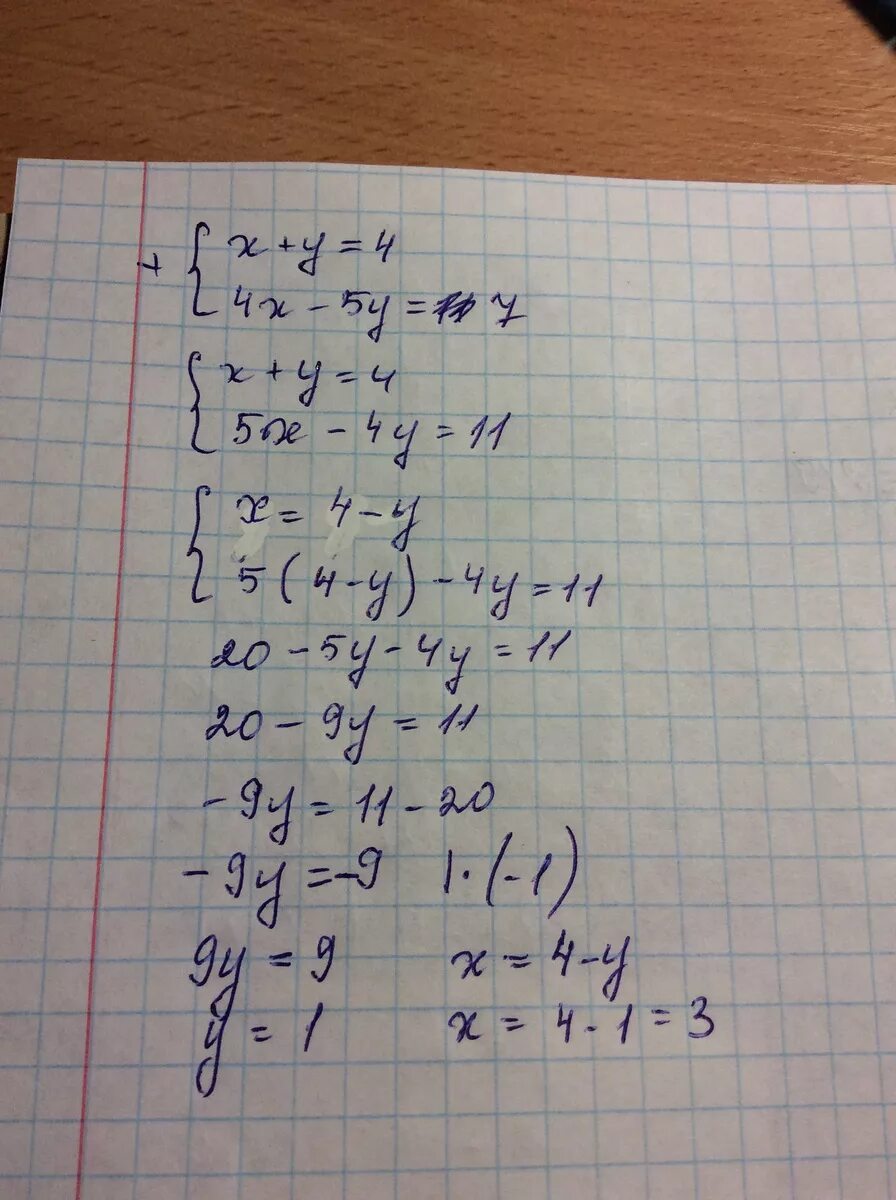 + { x + y = 4
4x - 5y = 7
{ x + y = 4
5x - 4y = 11
{ x = 4 - y
5(4-y) - 4y = 11
20 - 5y - 4y = 11
20 - 9y = 11
-9y = 11 - 20
-9y = -9 |·(-1)
9y = 9 x = 4 - y
y = 1 x = 4 - 1 = 3